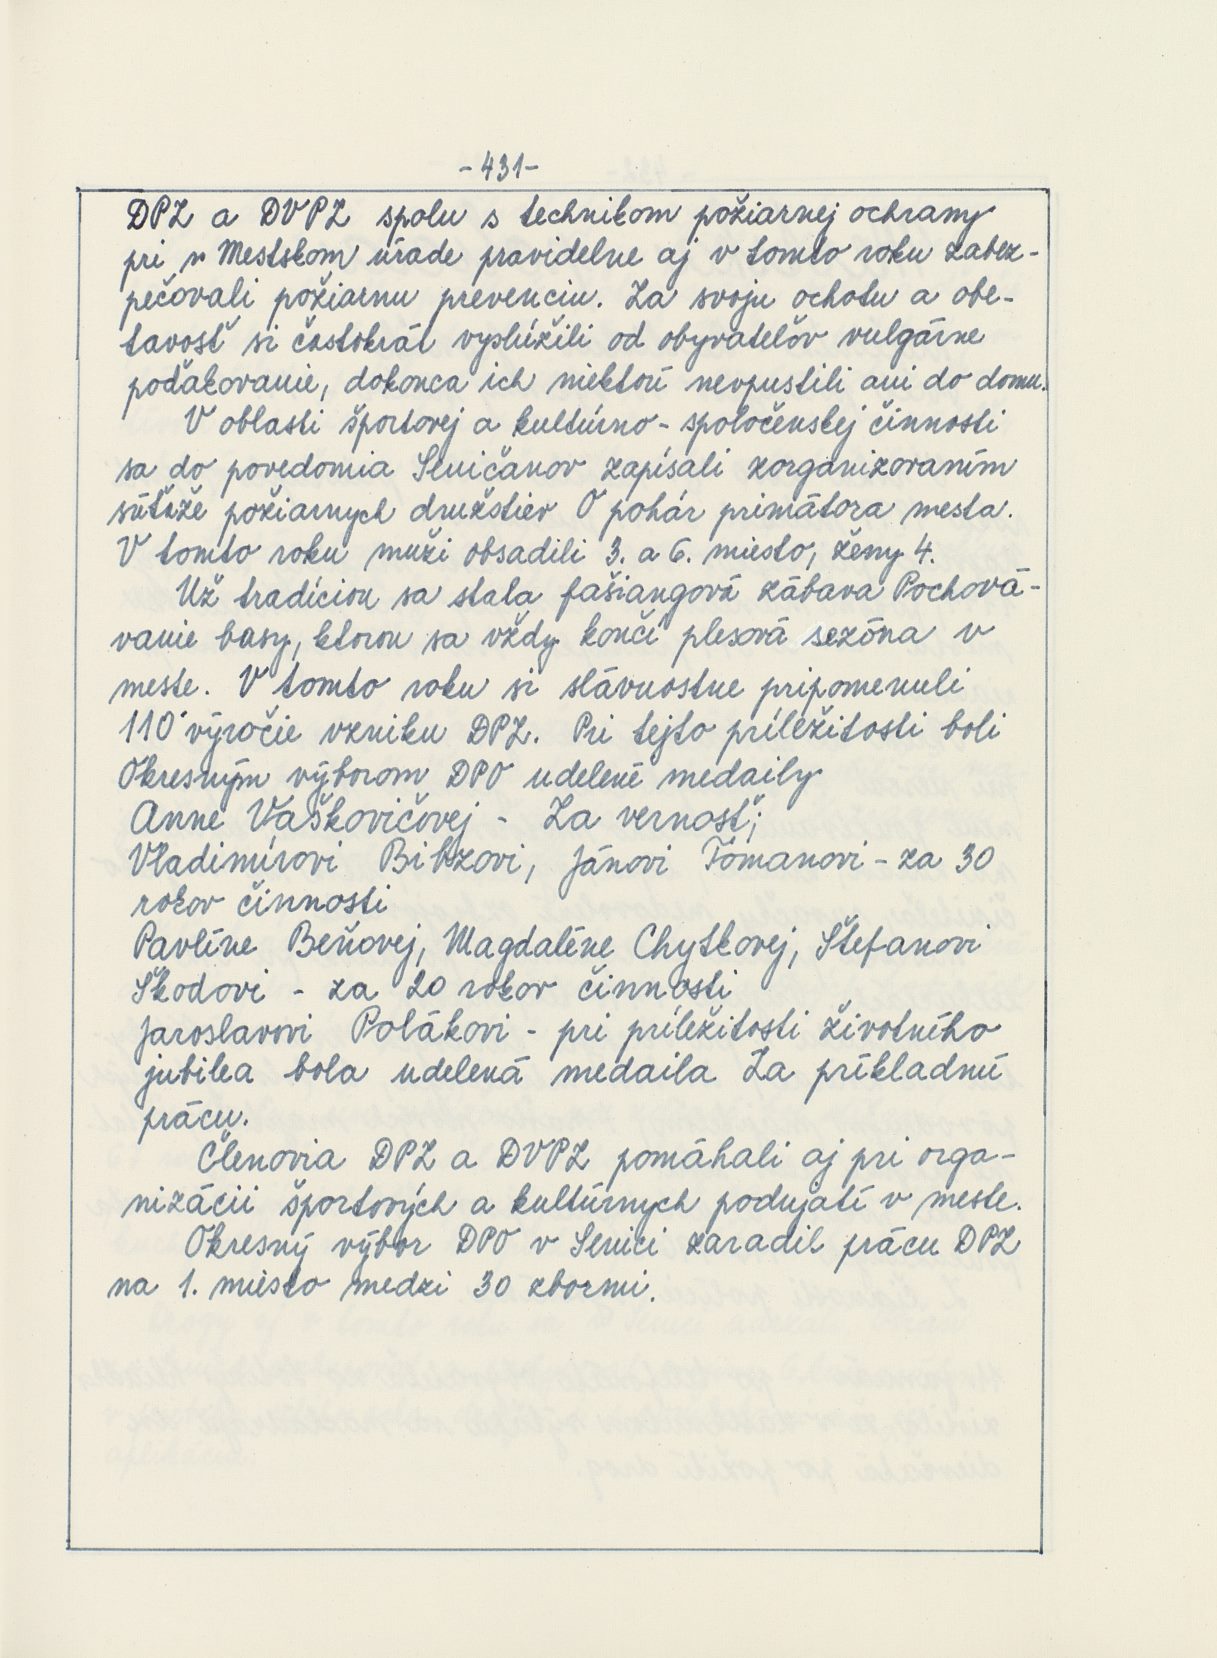 -431-
DPZ a DVPZ spolu s technikom požiarnej ochrany
pri Mestskom úrade pravidelne aj v tomto roku zabez-
pečovali požiarnu prevenciu. Za svoju ochotu a obe-
tavosť si častokrát vyslúžili od obyvateľov vulgárne
poďakovanie, dokonca ich niektorí nevpustili ani do domu.
V oblasti športovej a kultúrno-spoločenskej činnosti
sa do povedomia Seničanov zapísali zorganizovaním
súťaže požiarnych družstiev O pohár primátora mesta.
V tomto roku muži obsadili 3. a 6. miesto, ženy 4.
Už tradíciou sa stala fašiangová zábava Pochová-
vanie basy, ktorou sa vždy končí plesová sezóna v
meste. V tomto roku si slávnostne pripomenuli
110. výročie vzniku DPZ. Pri tejto príležitosti boli
Okresným výborom DPO udelené medaily
Anne Vaškovičovej - Za vernosť;
Vladimírovi Bibzovi, Jánovi Tomanovi - za 30
rokov činnosti
Pavlíne Beňovej, Magdaléne Chytkovej, Štefanovi
Škodovi - za 20 rokov činnosti
Jaroslavovi Polákovi - pri príležitosti životného
jubilea bola udelená medaila Za príkladnú
prácu.
Členovia DPZ a DVPZ pomáhali aj pri orga-
nizácii športových a kultúrnych podujatí v meste.
Okresný výbor DPO v Senici zaradil prácu DPZ
na 1. miesto medzi 30 zbormi.